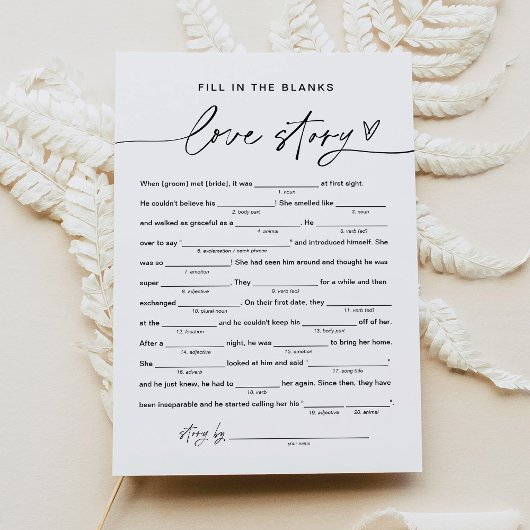 FILL IN THE BLANKS
love story
When [groom] met [bride], it was ____________ at first sight.
1. noun
He couldn't believe his ____________! She smelled like __________
2. body part 3. noun
and walked as graceful as a ____________. He ______________
4. animal 5. verb (ed)
over to say "____________________" and introduced himself. She
6. exclamation / catch phrase
was so ____________! She had seen him around and thought he was
7. emotion
super __________. They ____________ for a while and then
8. adjective 9. verb (ed)
exchanged ____________. On their first date, they ____________
10. plural noun 11. verb (ed)
at the __________ and he couldn't keep his __________ off of her.
12. location 13. body part
After a __________ night, he was __________ to bring her home.
14. adjective 15. emotion
She ____________ looked at him and said "______________"
16. adverb 17. song title
and he just knew, he had to ________ her again. Since then, they have
18. verb
been inseparable and he started calling her his "________ ________".
19. adjective 20. animal
story by: ______________________
your name